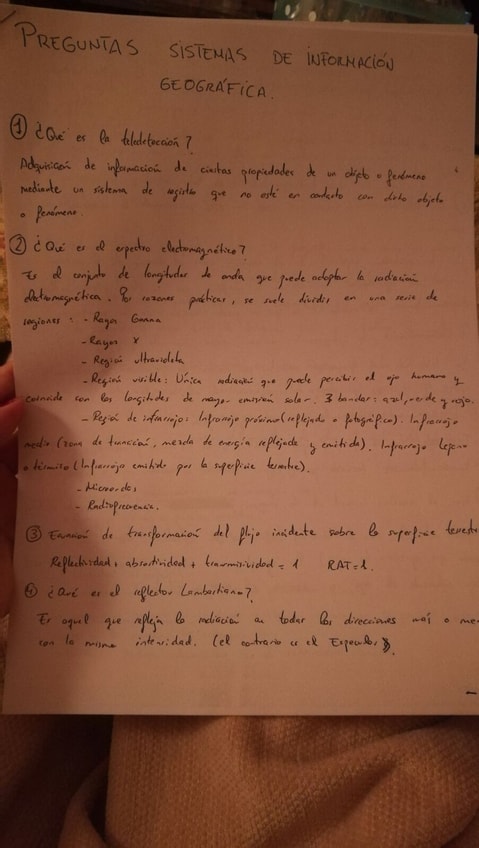 PREGUNTAS SISTEMAS DE INFORMACIÓN
GEOGRÁFICA.
① ¿Qué es la teledetección?
Adquisición de información de ciertas propiedades de un objeto o fenómeno
mediante un sistema de registro que no esté en contacto con dicho objeto
o fenómeno.
② ¿Qué es el espectro electromagnético?
Es el conjunto de longitudes de onda que puede adoptar la radiación
electromagnética. Por razones prácticas, se suele dividir en una serie de
regiones: - Rayos Gamma
- Rayos X
- Región ultravioleta
- Región visible: Única radiación que puede percibir el ojo humano y
coincide con las longitudes de mayor emisión solar. 3 bandas: azul, verde y roja.
- Región de infrarrojo: Infrarrojo próximo (reflejado o fotográfico). Infrarrojo
medio (zona de transición, mezcla de energía reflejada y emitida). Infrarrojo lejano
o térmico (Infrarrojo emitido por la superficie terrestre).
- Microondas
- Radiofrecuencia.
③ Ecuación de transformación del flujo incidente sobre la superficie terrestre
Reflectividad + absortividad + transmisividad = 1 RAT=1.
④ ¿Qué es el reflector Lambertiano?
Es aquel que refleja la radiación en todas las direcciones más o me
con la misma intensidad. (el contrario es el Especular).